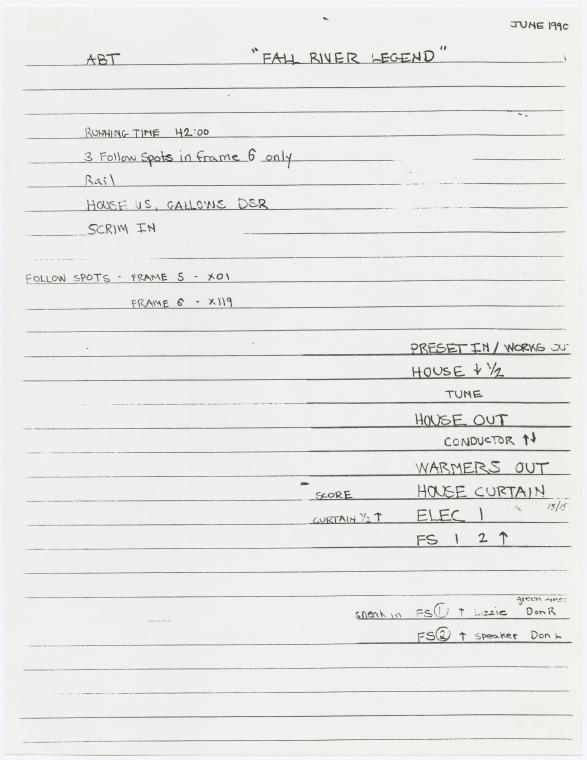 JUNE 1990
ABT "FALL RIVER LEGEND"
RUNNING TIME 42:00
3 Follow Spots in frame 6 only
Rail
HOUSE US, GALLOWS DSR
SCRIM IN
FOLLOW SPOTS - FRAME 5 - X01
FRAME 6 - X119
PRESET IN / WORKS
HOUSE ↓ 1/2
TUNE
HOUSE OUT
CONDUCTOR ↑↓
WARMERS OUT
SCORE HOUSE CURTAIN
CURTAIN 1/2 ↑ ELEC 1 15/15
FS 1 2 ↑
green
sneak in FS ① ↑ Lizzie Don R
FS ② ↑ speaker Don L